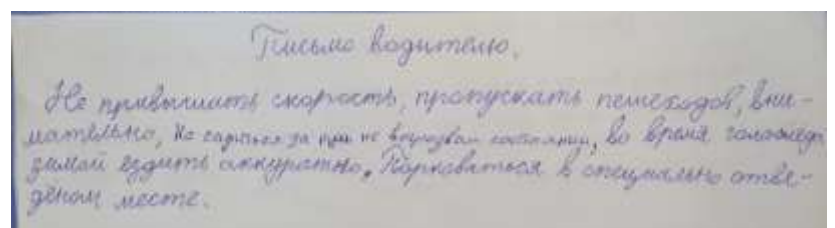 Письмо водителю.
Не превышать скорость, пропускать пешеходов, вни-
мательно, Не садиться за не в состоянии, во время гололёда
зимой ездить аккуратно. Парковаться в специально отве-
дёном месте.